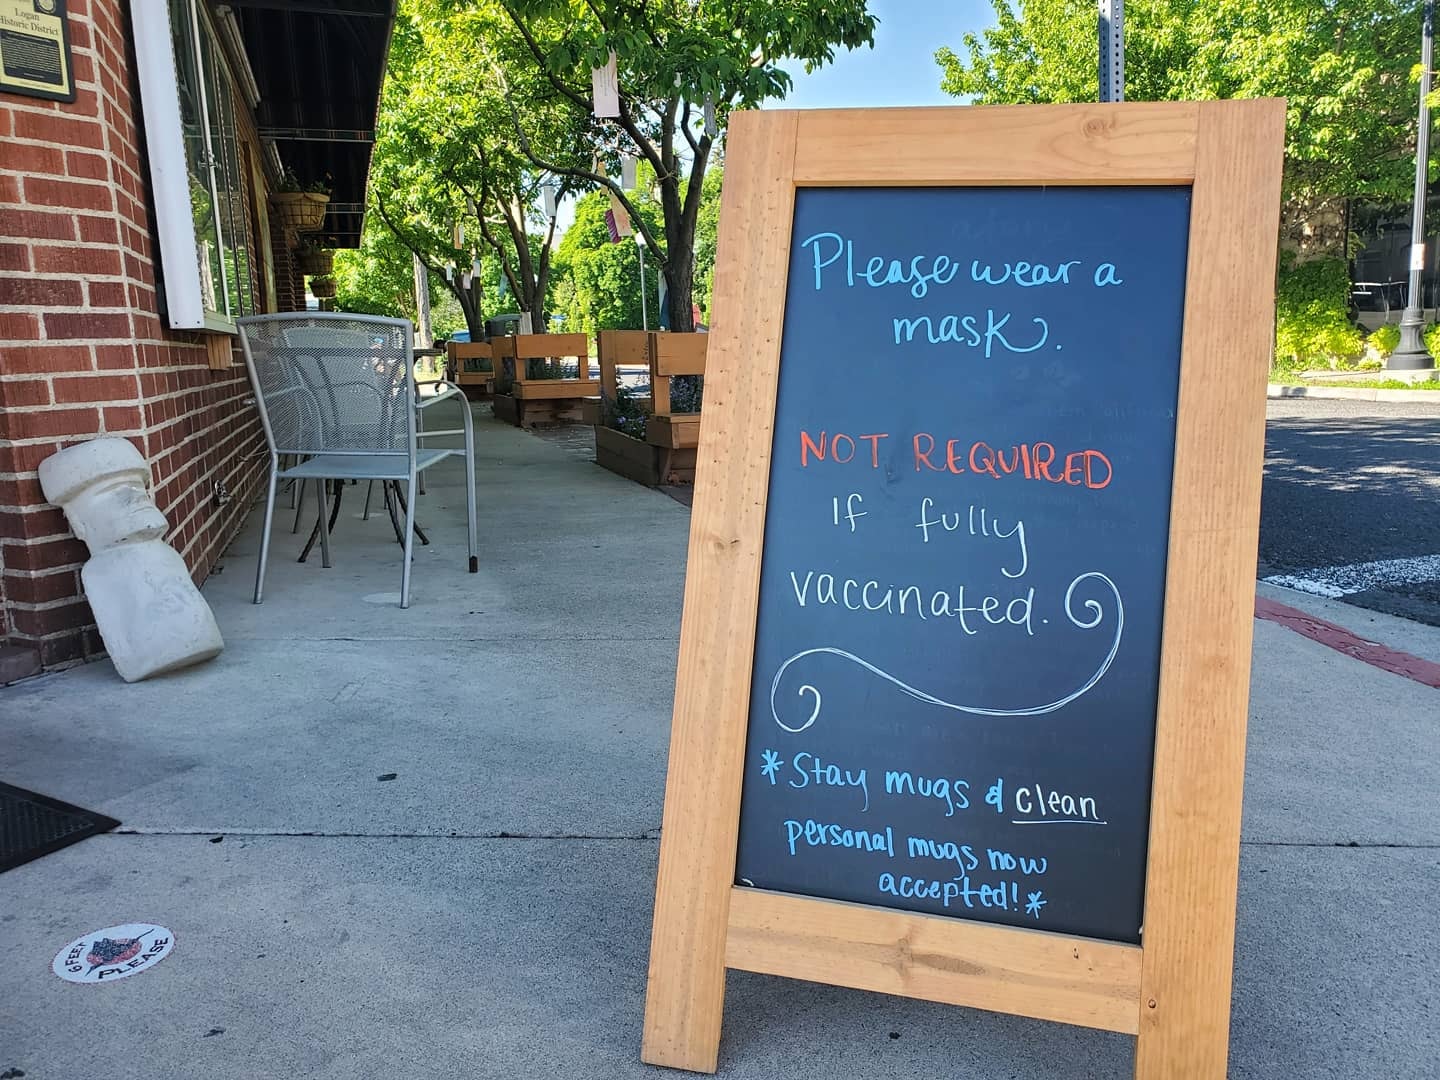 Logan
Historic District
Please wear a
mask.
NOT REQUIRED
If fully
vaccinated.
*Stay mugs & clean
personal mugs now
accepted!*
6 FEET
PLEASE